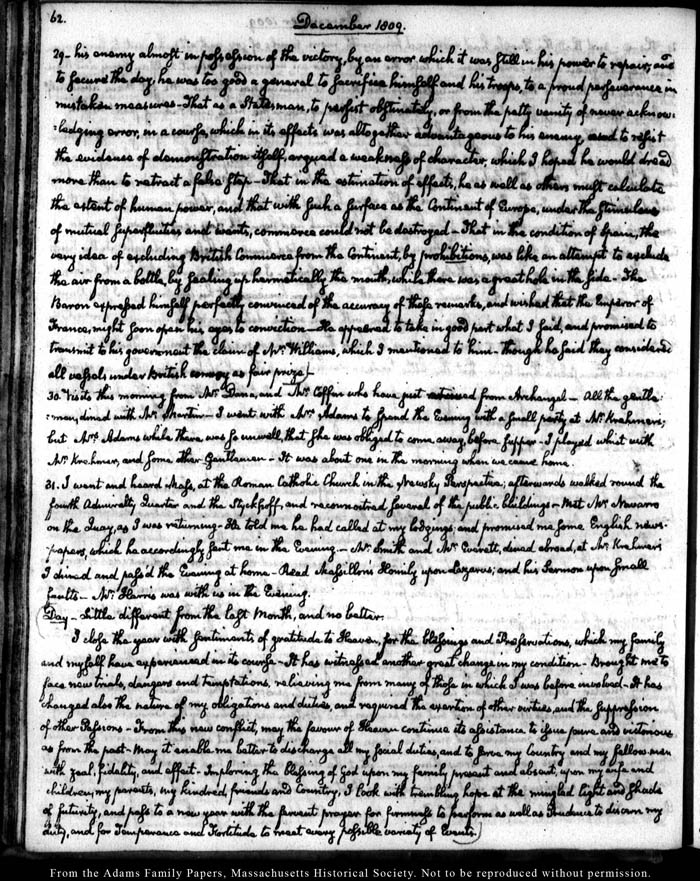 62.
December 1809.
29- his enemy almost in possession of the victory, by an error which it was still in his power to repair, and
to secure the day, he was too good a general to sacrifice himself and his troops, to a proud perseverance in
mistaken measures - That as a Statesman, to persist obstinately, or from the petty vanity of never acknow:
:ledging error, in a course, which in its effects was altogether advantageous to his enemy, and to resist
the evidence of demonstration itself, argued a weakness of character, which I hoped he would dread
more than to retract a false step - That in the estimation of effects, he as well as others must calculate
the extent of human power, and that with such a surface as the Continent of Europe, under the stimulus
of mutual superfluities and wants, commerce could not be destroyed - That in the condition of Spain, the
very idea of excluding British Commerce from the Continent, by prohibitions, was like an attempt to exclude
the air from a bottle, by sealing up hermetically the mouth, while there was a great hole in the side - The
Baron expressed himself perfectly convinced of the accuracy of those remarks, and wished that the Emperor of
France, might soon open his eyes to conviction - He appeared to take in good part what I said, and promised to
transmit to his government the claim of Mr. Williams, which I mentioned to him - though he said they considered
all vessels under British convoy as fair prize.)
30. Visits this morning from Mr. Dana, and Mr. Coffin who have just returned from Archangel - All the gentle:
:men, dined with Mr. Martin - I went with Mrs. Adams to spend the Evening with a small party at Mr. Krehmer's;
but Mrs. Adams while there, was so unwell, that she was obliged to come away, before supper - I played whist with
Mr. Krehmer, and some other Gentlemen - It was about one in the morning when we came home.
31. I went and heard Mass, at the Roman Catholic Church in the Newsky Perspective; afterwards walked round the
fourth Admiralty Quarter and the and reconnoitred several of the public buildings - Met Mr. Navarro
on the Quay, as I was returning - He told me he had called at my lodgings; and promised me some English news-
:papers, which he accordingly sent me in the Evening. - Mr. Smith and Mr. Everett, dined abroad, at Mr. Krehmer's
I dined and pass'd the Evening at home - Read Massillon's Homily upon Lazarus; and his Sermon upon small
faults - Mr. Harris was with us in the Evening.
(Day - Little different from the last Month, and no better.
I close the year with sentiments of gratitude to Heaven, for the blessings and Preservations, which my family
and myself have experienced in its course - It has witnessed another great change in my condition - Brought me to
face new trials, dangers and temptations, relieving me from many of those in which I was before involved - It has
changed also the nature of my obligations and duties, and required the exertion of other virtues, and the suppression
of other Passions - From this new conflict, may the favour of Heaven continue its assistance to issue pure and victorious
as from the past - May it enable me better to discharge all my social duties, and to serve my Country and my fellow men
with zeal, fidelity, and effect - Imploring the blessing of God upon my family present and absent, upon my wife and
children, my parents, my kindred, friends and Country, I look with trembling hope at the mingled light and shade
of futurity, and pass to a new year with the fervent prayer for firmness to perform as well as Prudence to discern my
duty, and for Temperance and Fortitude to meet every possible variety of Events.)
From the Adams Family Papers, Massachusetts Historical Society. Not to be reproduced without permission.